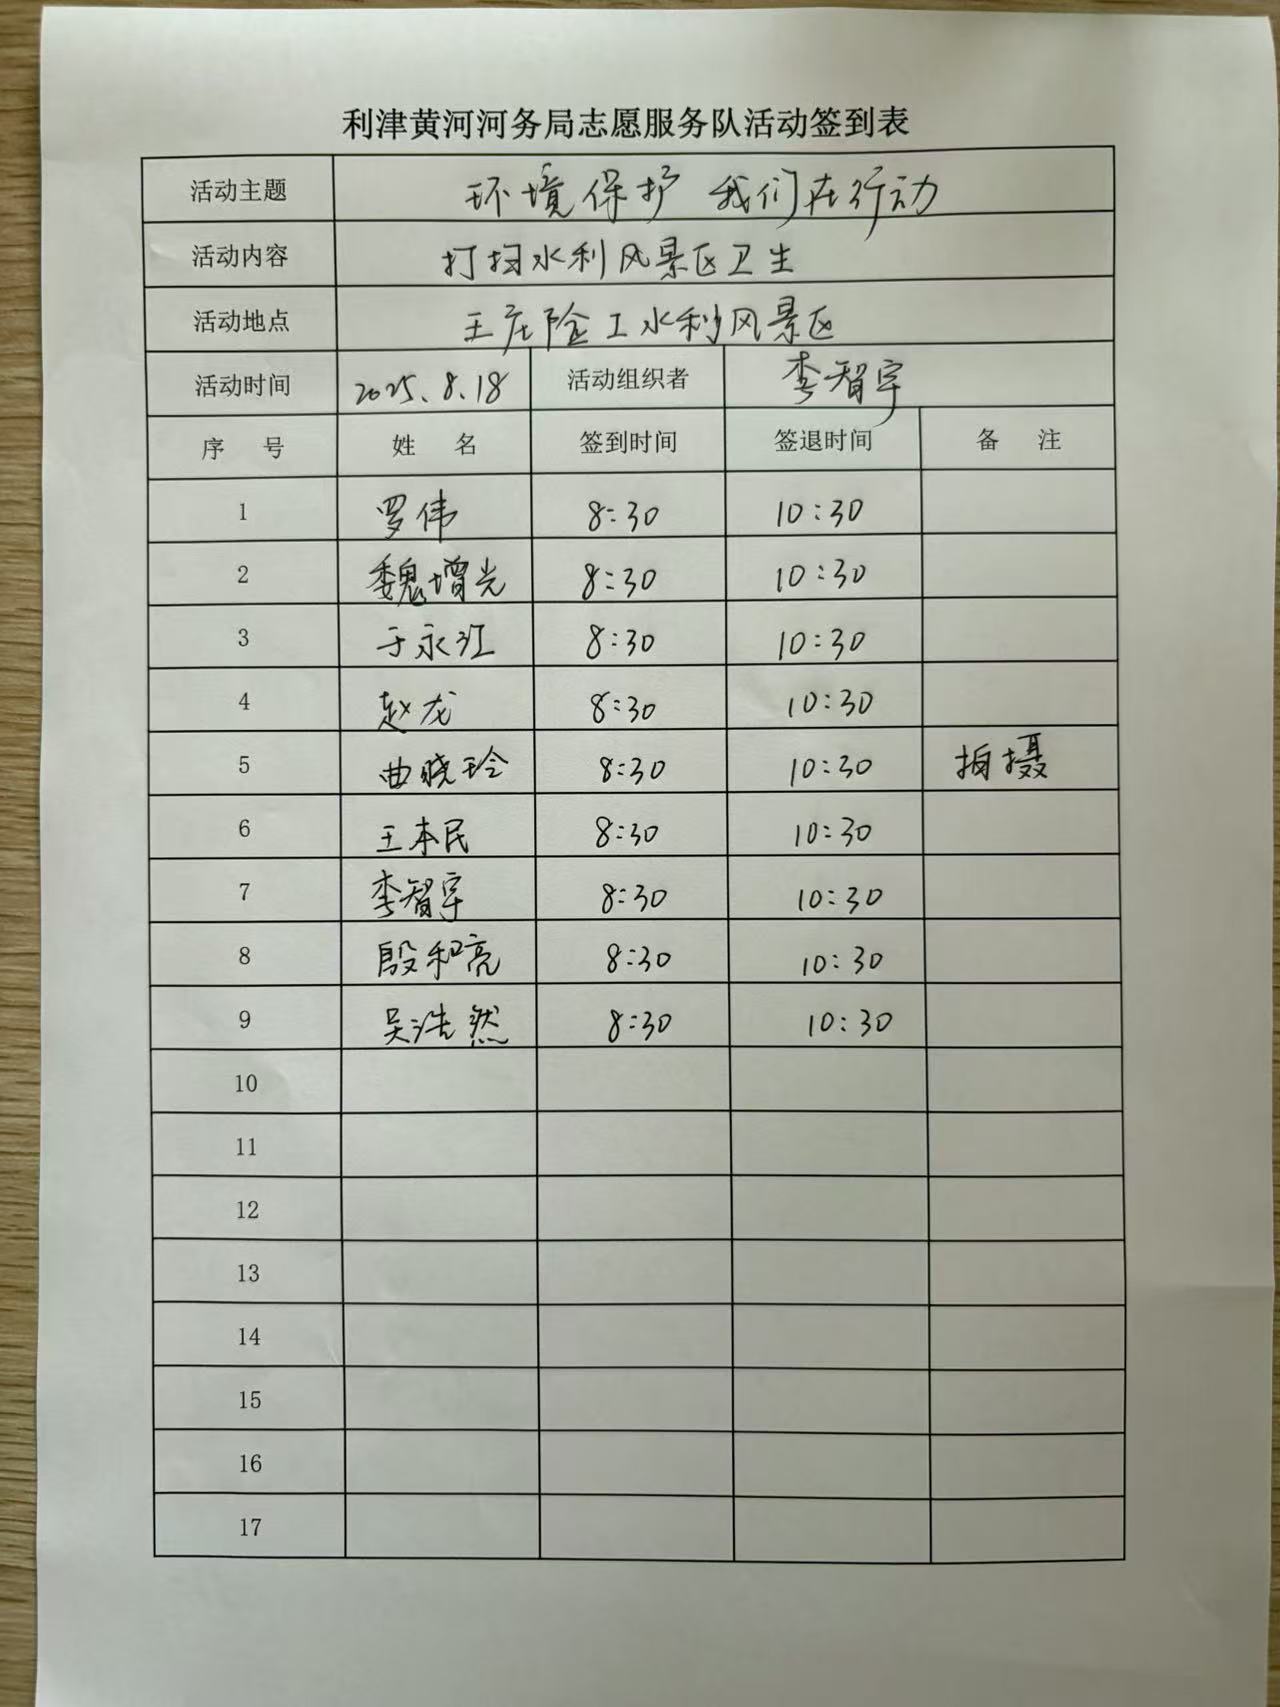 利津黄河河务局志愿服务队活动签到表
活动主题 环境保护 我们在行动
活动内容 打扫水利风景区卫生
活动地点 王庄险工水利风景区
活动时间 2025.8.18 活动组织者 李智宇
序 号 姓 名 签到时间 签退时间 备 注
1 罗伟 8:30 10:30
2 魏增光 8:30 10:30
3 于永江 8:30 10:30
4 赵龙 8:30 10:30
5 曲晓玲 8:30 10:30 拍摄
6 王本民 8:30 10:30
7 李智宇 8:30 10:30
8 殷和亮 8:30 10:30
9 吴浩然 8:30 10:30
10
11
12
13
14
15
16
17